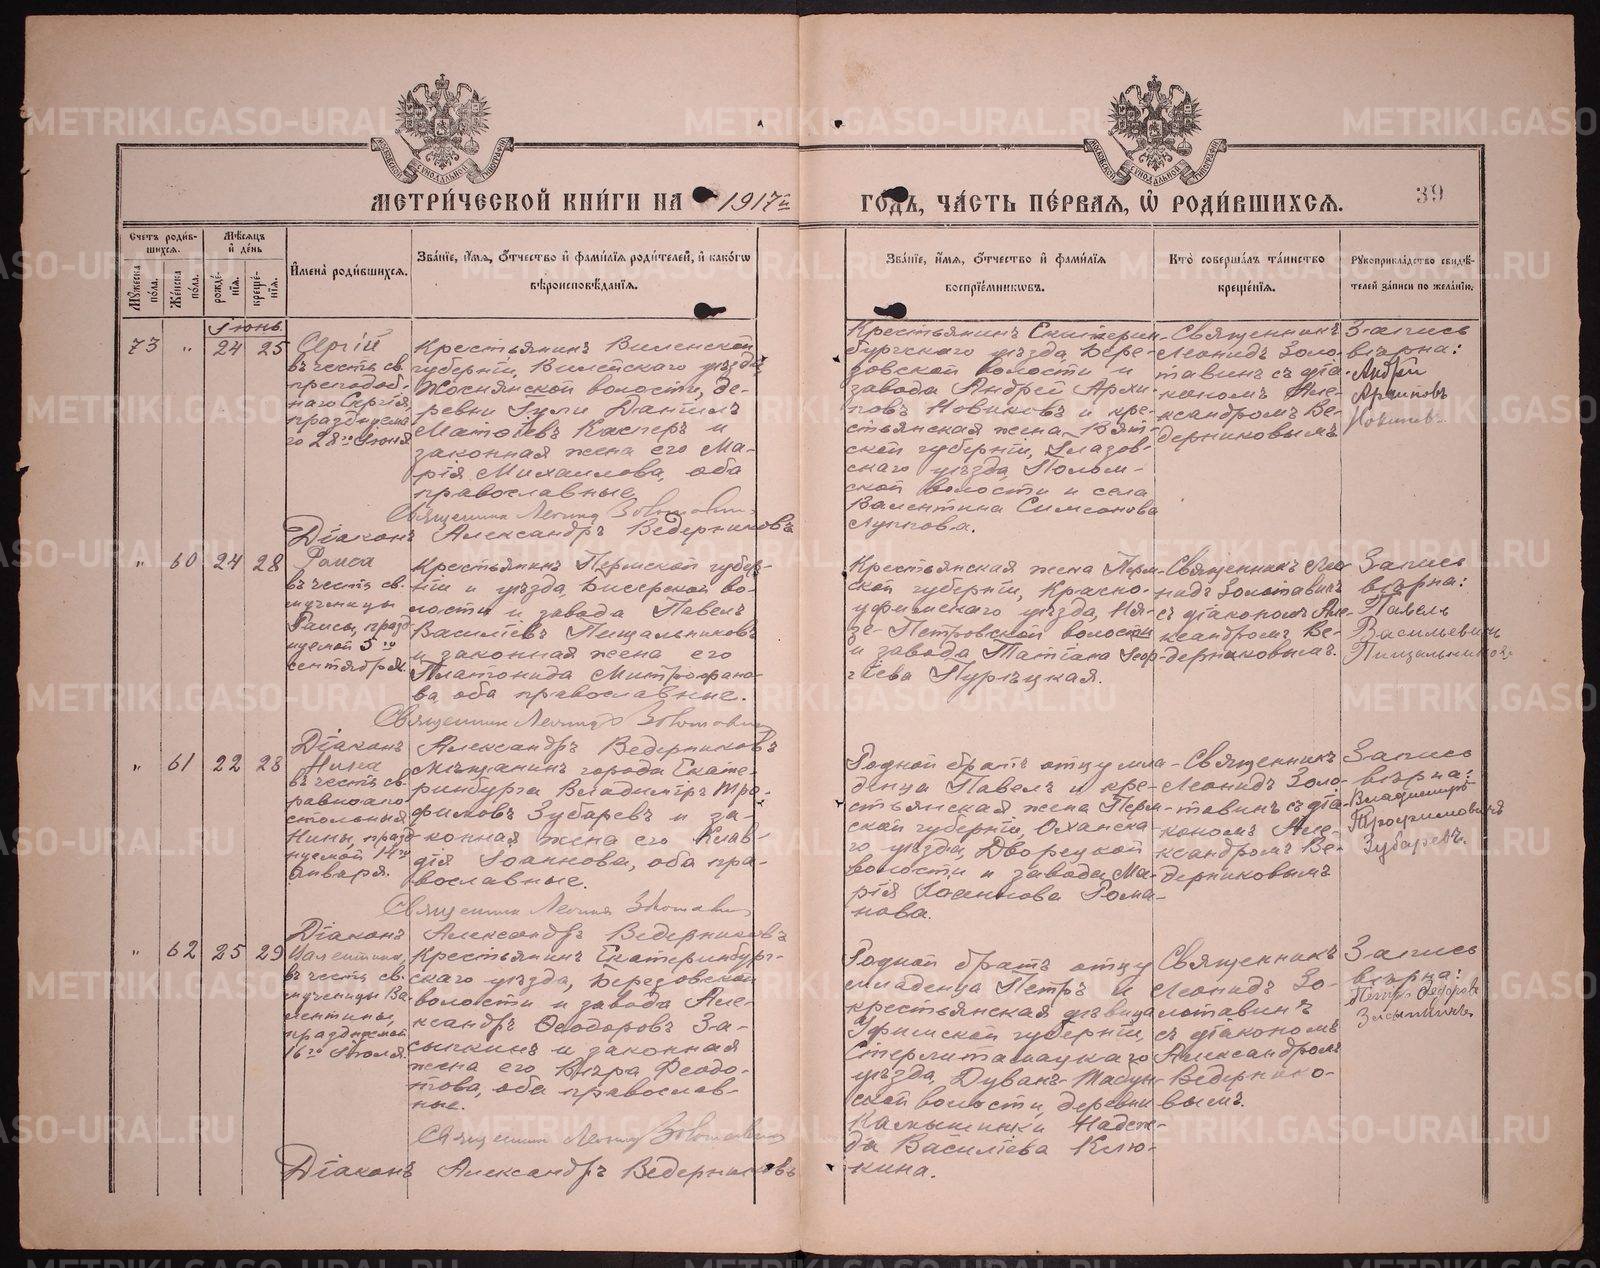 МЕТРИ́ЧЕСКОЙ КНИ́ГИ НА 1917й ГОДЪ, ЧА́СТЬ ПЕ́РВАЯ, Ѽ РОДИ́ВШИХСЯ.
39
Счетъ роди́в-
шихся.
Мѣсяцъ
и̂ де́нь
Мꙋжеска по́ла.
Же́нска по́ла.
рожде́-
нїя.
креще́-
нїя.
И̂мена̀ роди́вшихся.
Зва́нїе, и́мя, о́тчество и̂ фами́лїѧ роди́телей, и̂ како́гѡ
вѣроисповѣ́данїѧ.
Зва́нїе, и́мя, о́тчество и̂ фами́лїѧ
воспрїе́мникѡвъ.
Кто̀ соверша́лъ та́инство
креще́нїѧ.
Рꙋкоприкла́дство свидѣ́-
телей за́писи по жела́нїю.
Іюнь
73 " 24 25
Сергій
въ честь св.
преподоб-
наго Сергія,
празднуема-
го 28го Іюня
Крестьянинъ Виленской
губерніи, Вилейскаго уѣзда,
волости, де-
ревни Даніилъ
Матѳіевъ Касперъ и
законная жена его Ма-
рія Михаилова, оба
православные
Священникъ Леонид Золотавин
Діаконъ Александръ Ведерниковъ
Крестьянинъ Екатерин-
бургскаго уѣзда, Бере-
зовской волости и
завода Андрей Архи-
повъ Новиковъ и кре-
стьянская жена Вят-
ской губерніи, Глазов-
скаго уѣзда Полом-
ской волости и села
Валентина Симеонова
Священникъ
Леонидъ Золо-
тавинъ съ діа-
кономъ Але-
ксандромъ Ве-
дерниковымъ
Запись
вѣрна:
Андрей
Архиповъ
Новиков
" 60 24 28
Раиса
въ честь св.
мученицы
Раисы, празд-
нуемой 5го
сентября.
Крестьянинъ Пермской губер-
ніи и уѣзда, Бисерской во-
лости и завода Павелъ
Василіевъ Пищальниковъ
и законная жена его
Платонида Митрофано-
ва оба православные.
Священник Леонид Золотавин
Діаконъ Александръ Ведерниковъ
Крестьянская жена Перм-
ской губерніи, Красно-
уфимскаго уѣзда, Ня-
зе-Петровской волости
и завода Татіана Геор-
гіева
Священникъ Лео-
нидъ Золотавинъ
съ діакономъ Але-
ксандромъ Ве-
дерниковымъ.
Запись
вѣрна:
Павелъ
Васильевичъ
Пищальников
" 61 22 28
Нина
въ честь св.
равноапо-
стольныя
Нины, празд-
нуемой 14го
Января.
Мѣщанинъ города Екате-
ринбурга Владиміръ Тро-
фимовъ Зубаревъ и за-
конная жена его Клав-
дія Іоаннова, оба пра-
вославные.
Священник Леонид Золотавин
Діаконъ Александръ Ведерниковъ
Родной братъ отцу мла-
денца Павелъ и кре-
стьянская жена Перм-
ской губерніи, Оханска-
го уѣзда, Дворецкой
волости и завода Ма-
рія Іоаннова Рома-
нова.
Священникъ
Леонидъ Золо-
тавинъ съ діа-
кономъ Але-
ксандромъ Ве-
дерниковымъ
Запись
вѣрна:
Владимиръ
Трофимовичъ
Зубаревъ.
" 62 25 29
Валентина,
въ честь св.
мученицы Ва-
лентины,
празднуемой
16го Іюля.
Крестьянинъ Екатеринбург-
скаго уѣзда, Березовской
волости и завода Але-
ксандръ Ѳеодоровъ За-
сыпкинъ и законная
жена его Вѣра Ѳеодо-
това, оба православ-
ные.
Священник Леонид Золотавин
Діаконъ Александръ Ведерниковъ
Родной братъ отцу
младенца Петръ и
крестьянская дѣвица
Уфимской губерніи,
Стерлитамацкаго
уѣзда, Дуванъ-Табын-
ской волости, деревни
Камышинки Надеж-
да Василіева Клю-
кина.
Священникъ
Леонидъ Зо-
лотавинъ
съ діакономъ
Александромъ
Ведернико-
вымъ.
Запись
вѣрна:
Петръ Федоров
Засыпкинъ